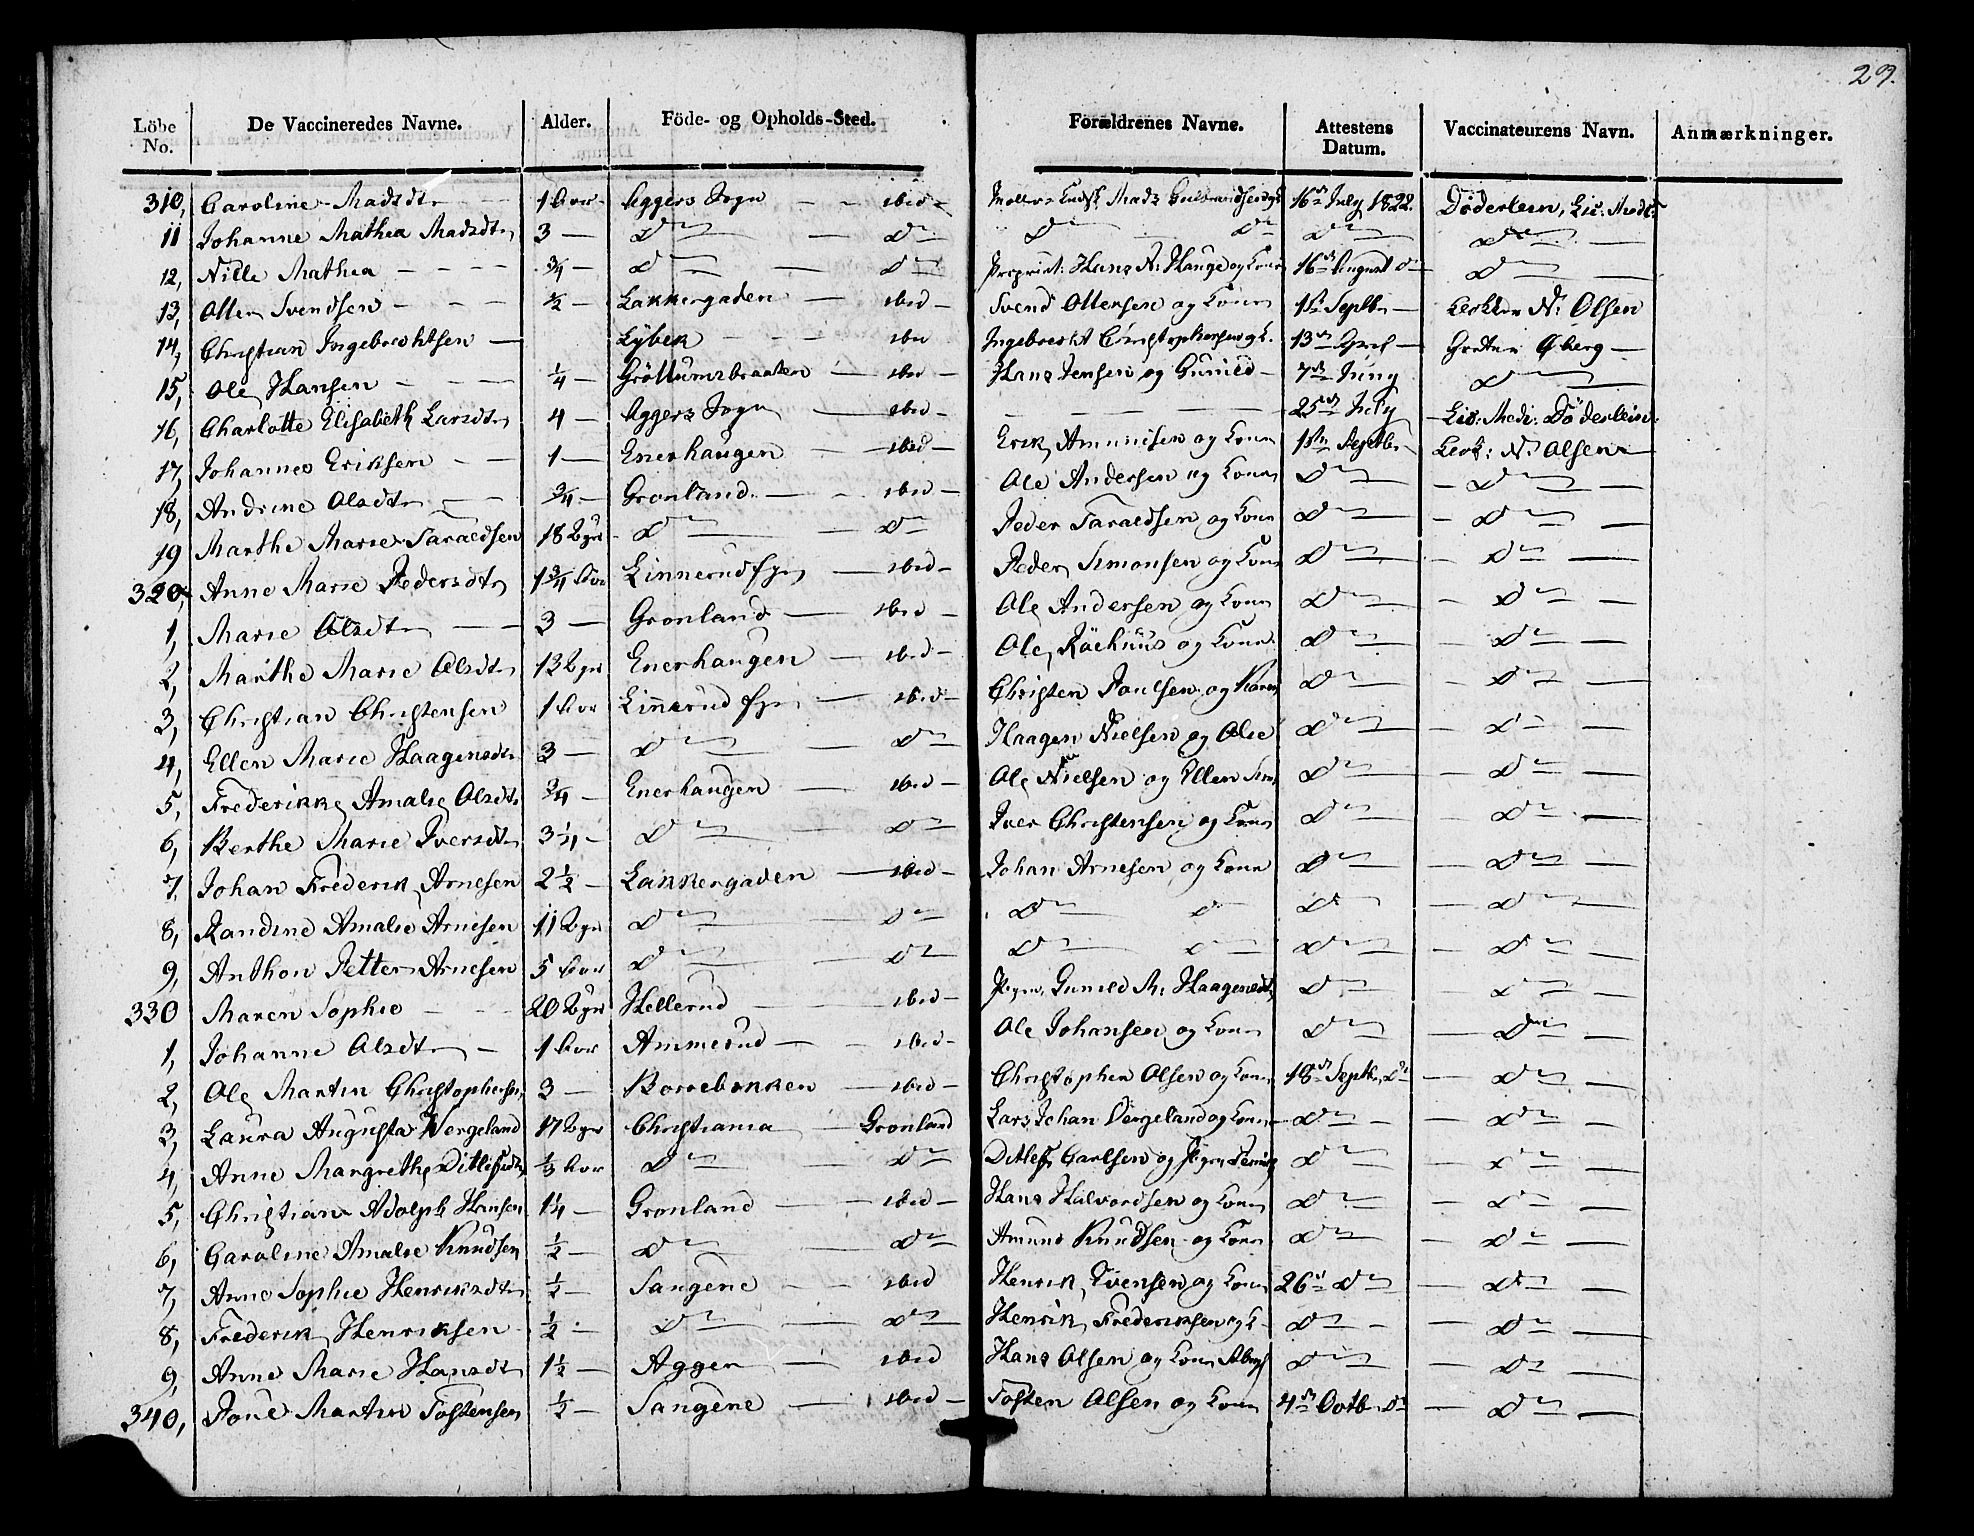 29.
Löbe No. De Vaccineredes Navne. Alder. Föde- og Opholds-Sted. Forældrenes Navne. Attestens Datum. Vaccinateurens Navn. Anmærkninger.
310, Caroline Madsdtr 1 Aar Aggers Sogn ibid Mads 16de July 1822. Döderlein, Lic: Med:
11 Johanne Mathea Madsdtr 3 Do Do Do Do Do Do
12, Nille Mathea 3/4 Do Do Propriet: Hans N: Hauge og Kone 16de August Do Do
13, Otter Svendsen 1/2 Lakkergaden ibid Svend Ottersen og Kone 1ste Septbr N: Olsen
14, Christian Ingebrechtsen Lybek ibid Ingebrecht Christophersen og K. 13de April Öberg
15, Ole Hansen 1/4 Gröttumsbraaten ibid Hans Jensen og Gunild 7de Juny Do
16, Charlotte Elisabeth Larsdtr 4 Aggers Sogn ibid 25de July Lic: Medi: Döderlein
17, Johannes Eriksen 1 Enerhaugen ibid Erik Amundsen og Kone 1ste Septbr N: Olsen
18, Andrine Olsdtr 3/4 Gronland ibid Ole Andersen og Kone Do Do
19 Marthe Marie Taraldsen 18 Uger Do Do Peder Taraldsen og Kone Do Do
320, Anne Marie Pedersdtr 1 3/4 Aar Linnerud ibid Peder Simonsen og Kone Do Do
1, Marie Olsdtr 3 Gronland ibid Ole Andersen og Kone Do Do
2, Marthe Marie Olsdtr 13 Uger Enerhaugen ibid Ole og Kone Do Do
3, Christian Christensen 1 Aar Linnerud ibid Christen Poulsen og Karen Do Do
4, Ellen Marie Haagensdtr 3 Do Do Haagen Nielsen og Olie Do Do
5, Frederikke Amalie Olsdtr 3/4 Enerhaugen ibid Ole Nielsen og Ellen Do Do
6, Berthe Marie Iversdtr 3 1/4 Do Do Iver Christensen og Kone Do Do
7, Johan Frederik Arnesen 2 1/2 Lakkergaden ibid Johan Arnesen og Kone Do Do
8, Randine Amalie Arnesen 11 Uger Do Do Do Do Do Do
9, Anthon Petter Arnesen 5 Aar Do Do Do Do Do Do
330 Maren Sophie 20 Uger Hellerud ibid Pigen Gunild M: Haagensdtr Do Do
1, Johanne Olsdtr 1 Aar Ammerud ibid Ole Johansen og Kone Do Do
2, Ole Martin Christophersen 3 ibid Christopher Olsen og Kone 18de Septbr Do Do
3, Laura Augusta Wergeland 17 Uger Christiania Gronland Lars Johan Vergeland og Kone Do Do
4, Anne Margrethe Ditlefsdtr 1/3 Aar Do Do Ditlef Carlsen og Do Do
5, Christian Adolph Hansen 1 1/4 Gronland ibid Hans Halvordsen og Kone Do Do
6, Caroline Amalie Knudsen 1/2 Do Do Amund Knudsen og Kone Do Do
7, Anne Sophie Henriksdtr 1/2 Sangene ibid Henrik Evensen og Kone 26de Do Do
8, Frederik Henriksen 1/2 Do Do Henrik Frederiksen og K Do Do
9, Anne Marie Hansdtr 1 1/2 Agger ibid Hans Olsen og Kone Do Do
340, Poul Martin Tostensen 1/2 Sangene ibid Tosten Olsen og Kone 4de Octb Do Do